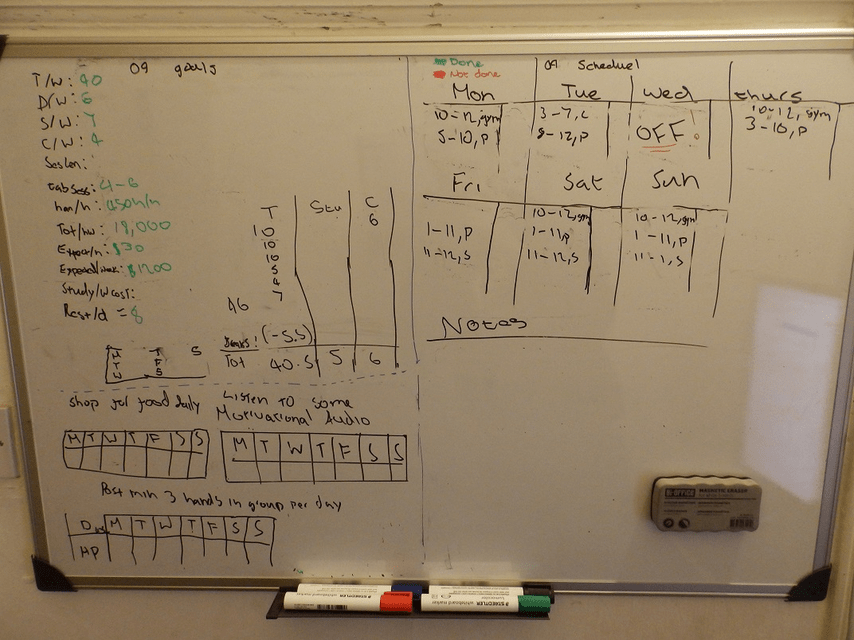 09 goals
T/W: 40
D/W: 6
S/W: 7
C/W: 4
Seslen:
tabsess: 4-6
han/h: 450h/h
Tot/hw: 18,000
Expect/h: $30
Expected/week: $1200
Study/W cost:
Rest/d = 8
T Stu C
10 6
10
10
5
4
7
46
Breaks! (-5.5)
Tot 40.5 5 6
M T S
T F
W S
shop for food daily
M T W T F S S
Listen to some
Motivational Audio
M T W T F S S
Post min 3 hands in group per day
Day M T W T F S S
HP
Done
Not done
09 Schedule!
Mon Tue Wed thurs
10-12, gym 3-7, C OFF! 10-12, gym
5-10, P 8-12, P 3-10, P
Fri Sat Sun
10-12, gym 10-12, gym
1-11, P 1-11, P 1-11, P
11-12, S 11-12, S 11-1, S
Notes
BI-OFFICE MAGNETIC ERASER
STAEDTLER STAEDTLER